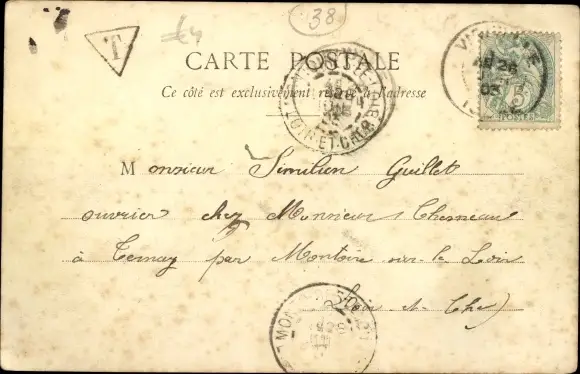 T
38
CARTE POSTALE
Ce côté est exclusivement réservé à l'adresse
5
POSTES
LOIR-ET-CHER
26
03
Monsieur Similien Guillet
ouvrier chez Monsieur Chesneau
à Ternay par Montoire sur le Loir
Loir et Che)
MON
26